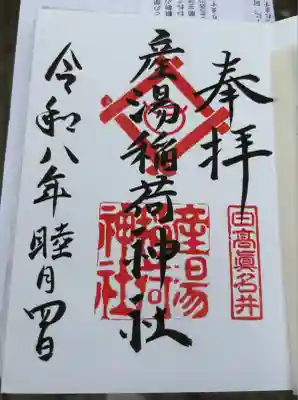 奉拝
日高眞名井
産湯稲荷神社
産湯
稲荷
神社
令和八年睦月四日